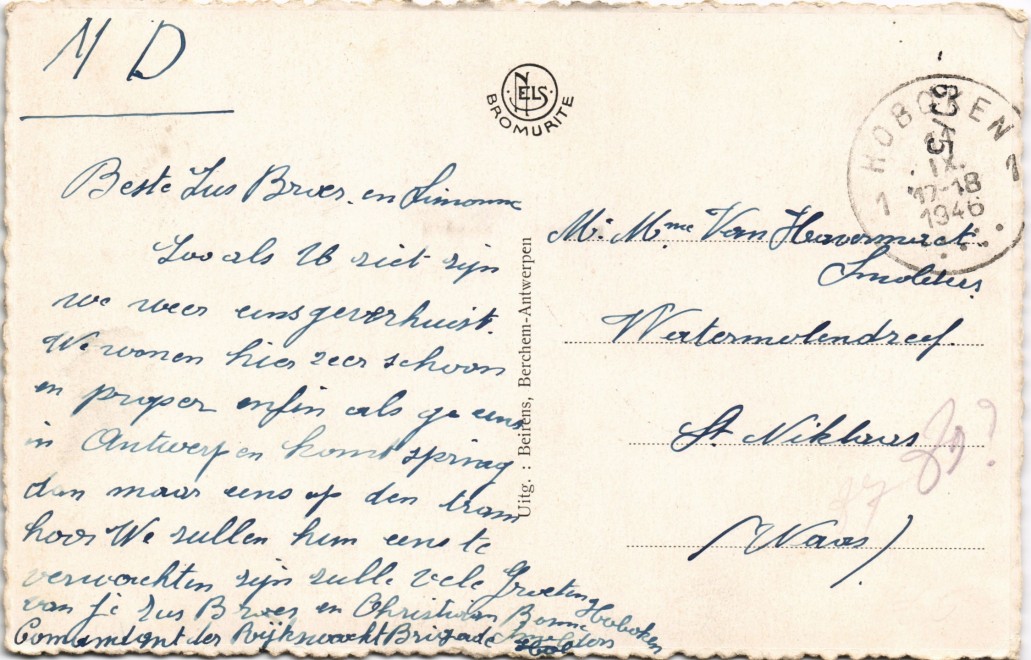 M D
NELS
BROMURITE
HOBOKEN
1 1
IX
17-18
1946
9/5
Beste Zus Broer. en Simonne
Zooals U ziet zijn
we weer eens geverhuist.
We wonen hier zeer schoon
en proper enfin als ge eens
in Antwerpen komt spring
dan maar eens op den tram
hoor We zullen hem eens te
verwachten zijn zulle vele Groeting
van je Zus Broer en Christiaan Bonne Hoboken
Comandant der Rijkswacht Brigade Smolders
Uitg. : Beirens, Berchem-Antwerpen
Mr. Mme Van Havermaet
Smolders
Watermolendreef.
St. Niklaas
(Waas)